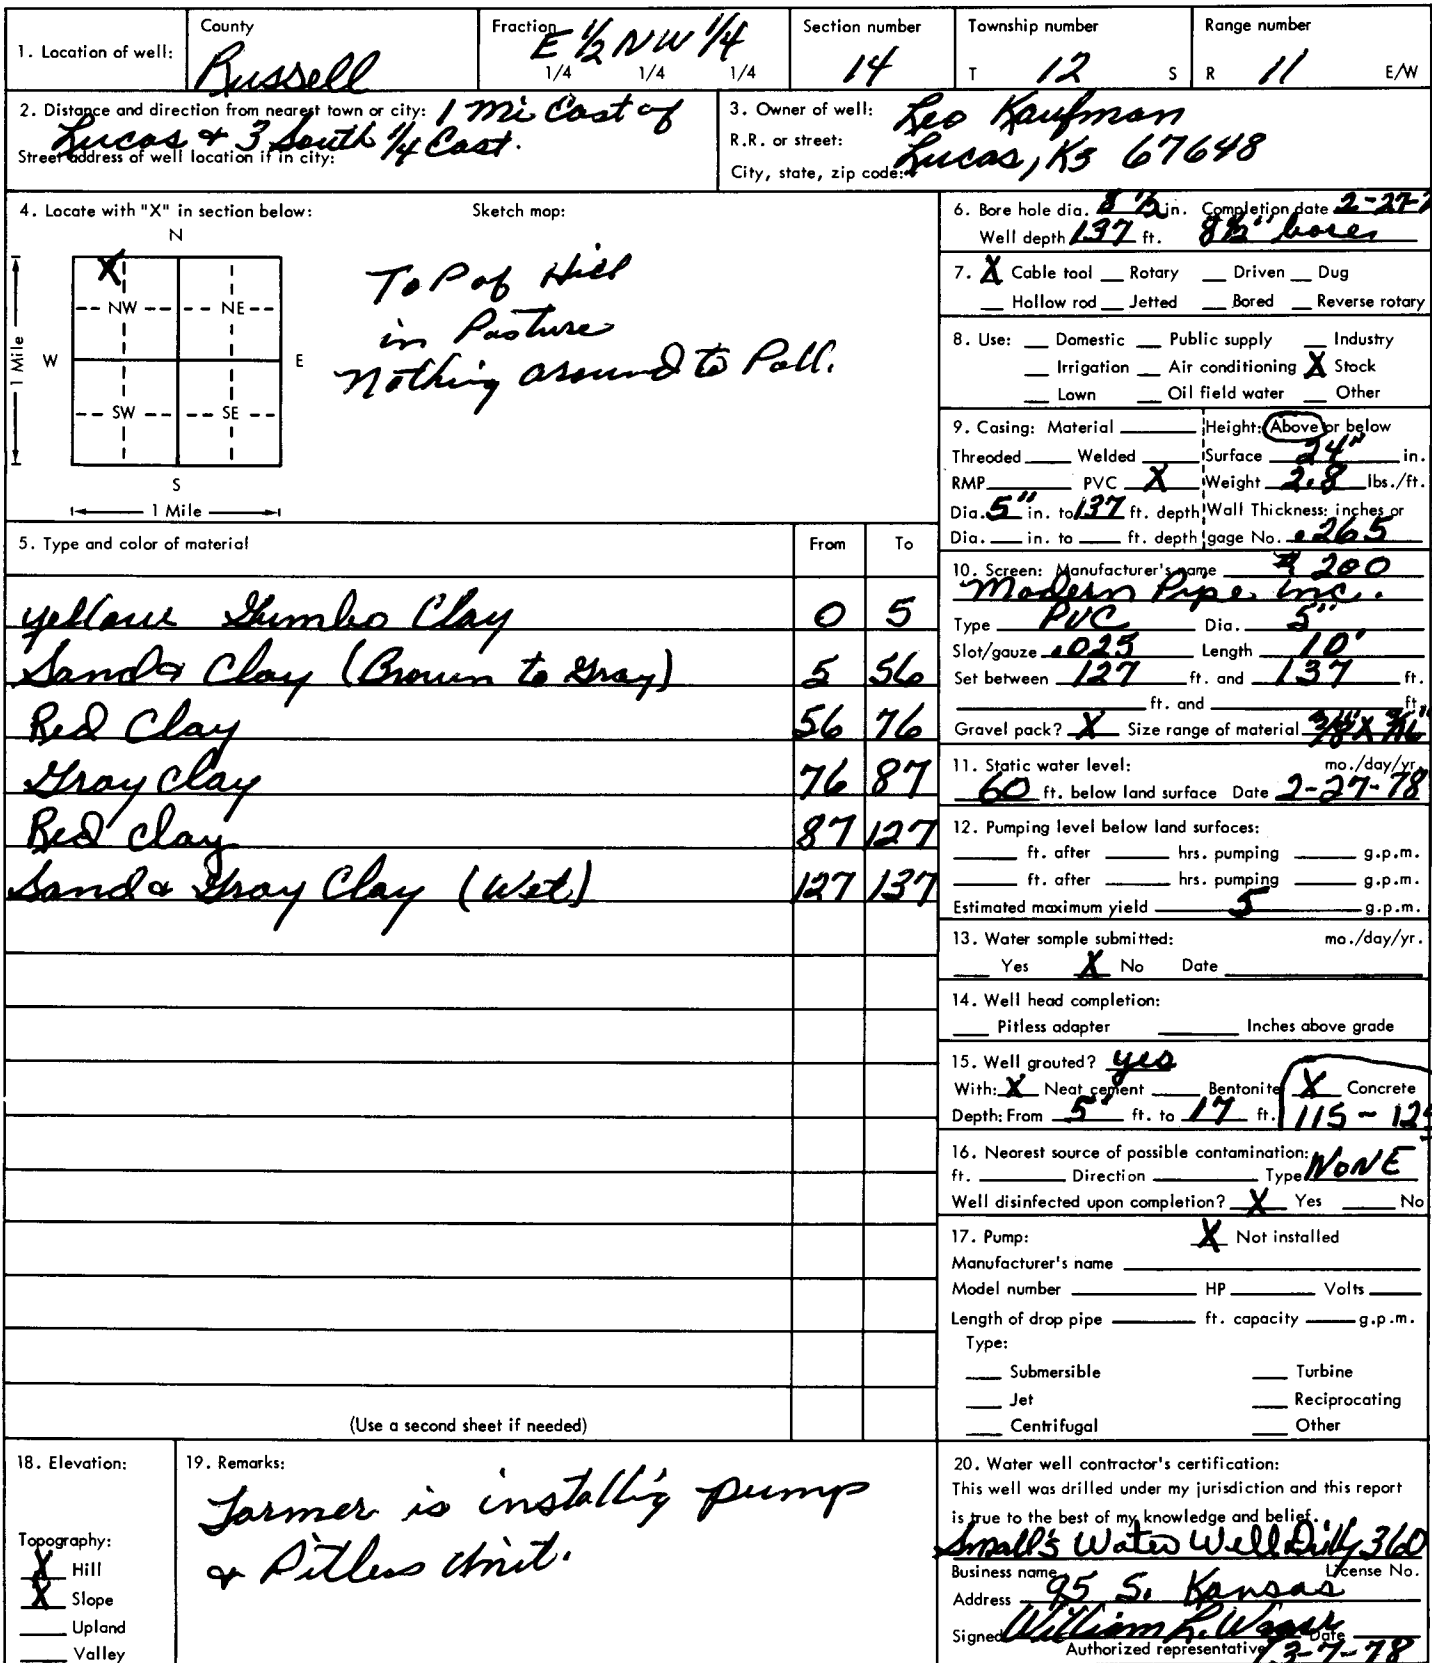 1. Location of well:
County
Russell
Fraction
E 1/2 NW 1/4
1/4 1/4 1/4
Section number
14
Township number
T 12 S
Range number
R 11 E/W
2. Distance and direction from nearest town or city: 1 Mi East of
Lucas & 3 South 1/4 East.
Street address of well location if in city:
3. Owner of well: Leo Kaufman
R.R. or street:
City, state, zip code: Lucas, Ks 67648
4. Locate with "X" in section below:
Sketch map:
N
X
NW NE
W E
SW SE
S
1 Mile
1 Mile
Top of Hill
in Pasture
Nothing around to Poll.
5. Type and color of material From To
yellow Gumbo Clay 0 5
Sand & Clay (Brown to Gray) 5 56
Red Clay 56 76
Gray clay 76 87
Red clay 87 127
Sand & Gray Clay (Wet) 127 137
(Use a second sheet if needed)
6. Bore hole dia. 8 1/2 in. Completion date 2-27-7
Well depth 137 ft. 8 1/2" bores
7. X Cable tool Rotary Driven Dug
Hollow rod Jetted Bored Reverse rotary
8. Use: Domestic Public supply Industry
Irrigation Air conditioning X Stock
Lawn Oil field water Other
9. Casing: Material Height: Above or below
Threaded Welded Surface 24" in.
RMP PVC X Weight 2.8 lbs./ft.
Dia. 5" in. to 137 ft. depth Wall Thickness: inches or
Dia. in. to ft. depth gage No. .265
10. Screen: Manufacturer's name # 200
Modern Pipe Inc.
Type PVC Dia. 5"
Slot/gauze .025 Length 10'
Set between 127 ft. and 137 ft.
ft. and ft.
Gravel pack? X Size range of material 3/8" X 3/16"
11. Static water level: mo./day/yr.
60 ft. below land surface Date 2-27-78
12. Pumping level below land surfaces:
ft. after hrs. pumping g.p.m.
ft. after hrs. pumping g.p.m.
Estimated maximum yield 5 g.p.m.
13. Water sample submitted: mo./day/yr.
Yes X No Date
14. Well head completion:
Pitless adapter Inches above grade
15. Well grouted? yes
With: X Neat cement Bentonite X Concrete
Depth: From 5' ft. to 17 ft. 115 - 125
16. Nearest source of possible contamination:
ft. Direction Type NONE
Well disinfected upon completion? X Yes No
17. Pump: X Not installed
Manufacturer's name
Model number HP Volts
Length of drop pipe ft. capacity g.p.m.
Type:
Submersible Turbine
Jet Reciprocating
Centrifugal Other
18. Elevation:
Topography:
X Hill
X Slope
Upland
Valley
19. Remarks:
Farmer is installig pump
& Pitless Unit.
20. Water well contractor's certification:
This well was drilled under my jurisdiction and this report
is true to the best of my knowledge and belief.
Small's Water Well Drilg 360
Business name License No.
Address 95 S. Kansas
Signed William L. Date
Authorized representative 3-7-78